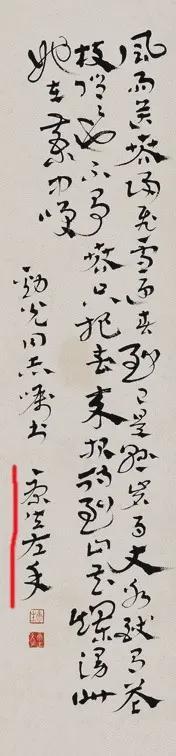 風雨送春歸飛雪迎春到已是懸崖百丈冰猶有花
枝俏俏也不爭春只把春來報待到山花爛漫時
她在叢中笑
勁光同志囑書 左手